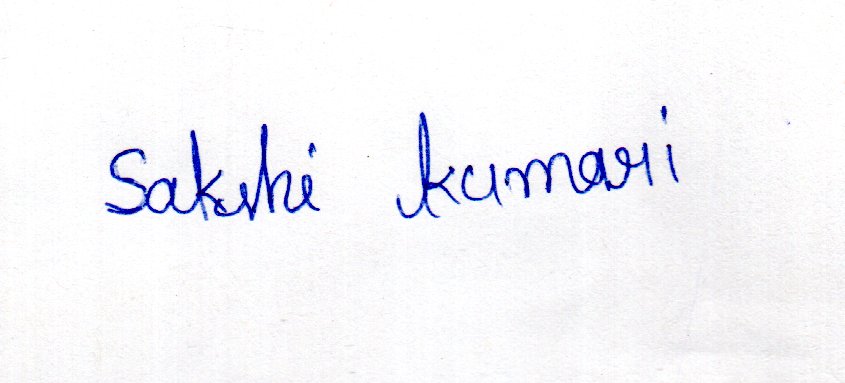 Sakshi kumari